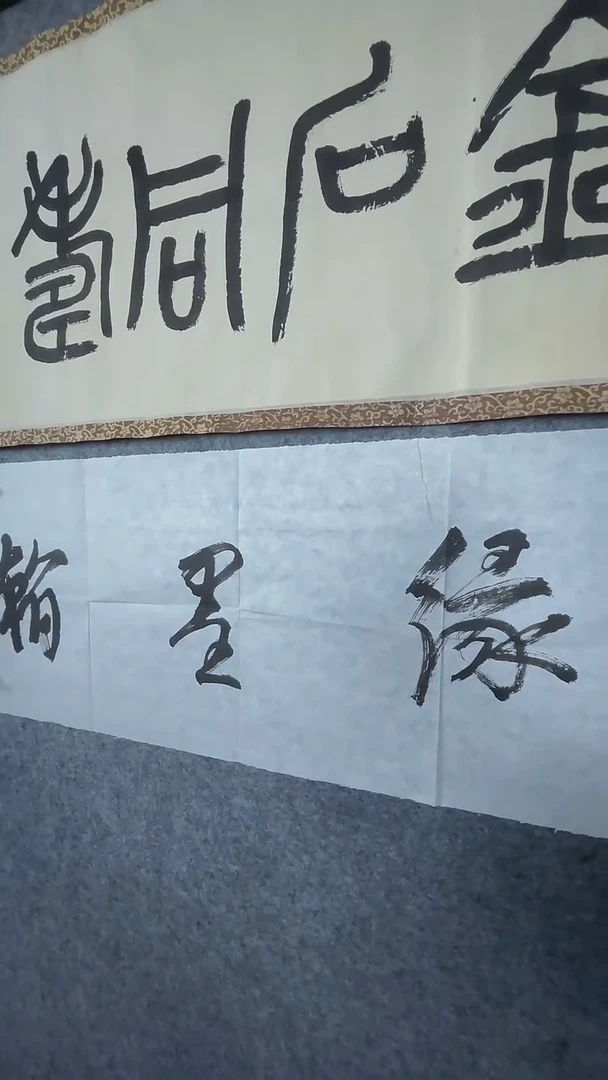 金石同壽
翰墨缘